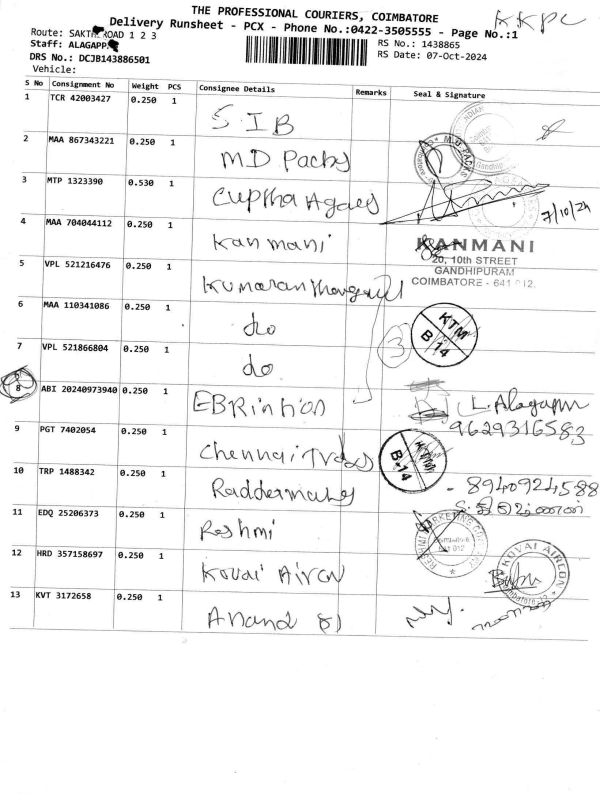 THE PROFESSIONAL COURIERS, COIMBATORE
KKPC
Delivery Runsheet - PCX - Phone No.:0422-3505555 - Page No.:1
Route: SAKTHI ROAD 1 2 3
RS No.: 1438865
Staff: ALAGAPP
RS Date: 07-Oct-2024
DRS No.: DCJB143886501
Vehicle:
S No Consignment No Weight PCS Consignee Details Remarks Seal & Signature
1 TCR 42003427 0.250 1 S.I B
2 MAA 867343221 0.250 1 MD Packs
M.D PACKS
3 MTP 1323390 0.530 1 Cuptha Agaes
7/10/24
4 MAA 704044112 0.250 1 Kanmani
KANMANI
20, 10th STREET
GANDHIPURAM
COIMBATORE - 641 012.
5 VPL 521216476 0.250 1 Kumaran
6 MAA 110341086 0.250 1 do
KTM
B-14
3
7 VPL 521866804 0.250 1 do
8 ABI 20240973940 0.250 1 EBRintion
L. Alagappn
9629316583
9 PGT 7402054 0.250 1 Chennai Trdes
KTM
B-14
10 TRP 1488342 0.250 1 Raddermates
- 8940924588
11 EDQ 25206373 0.250 1 Reshmi
RESHMI MARKETING
641 012
12 HRD 357158697 0.250 1 Kovai Aircn
KOVAI AIRCON
Coimbatore-12
13 KVT 3172658 0.250 1 Anand